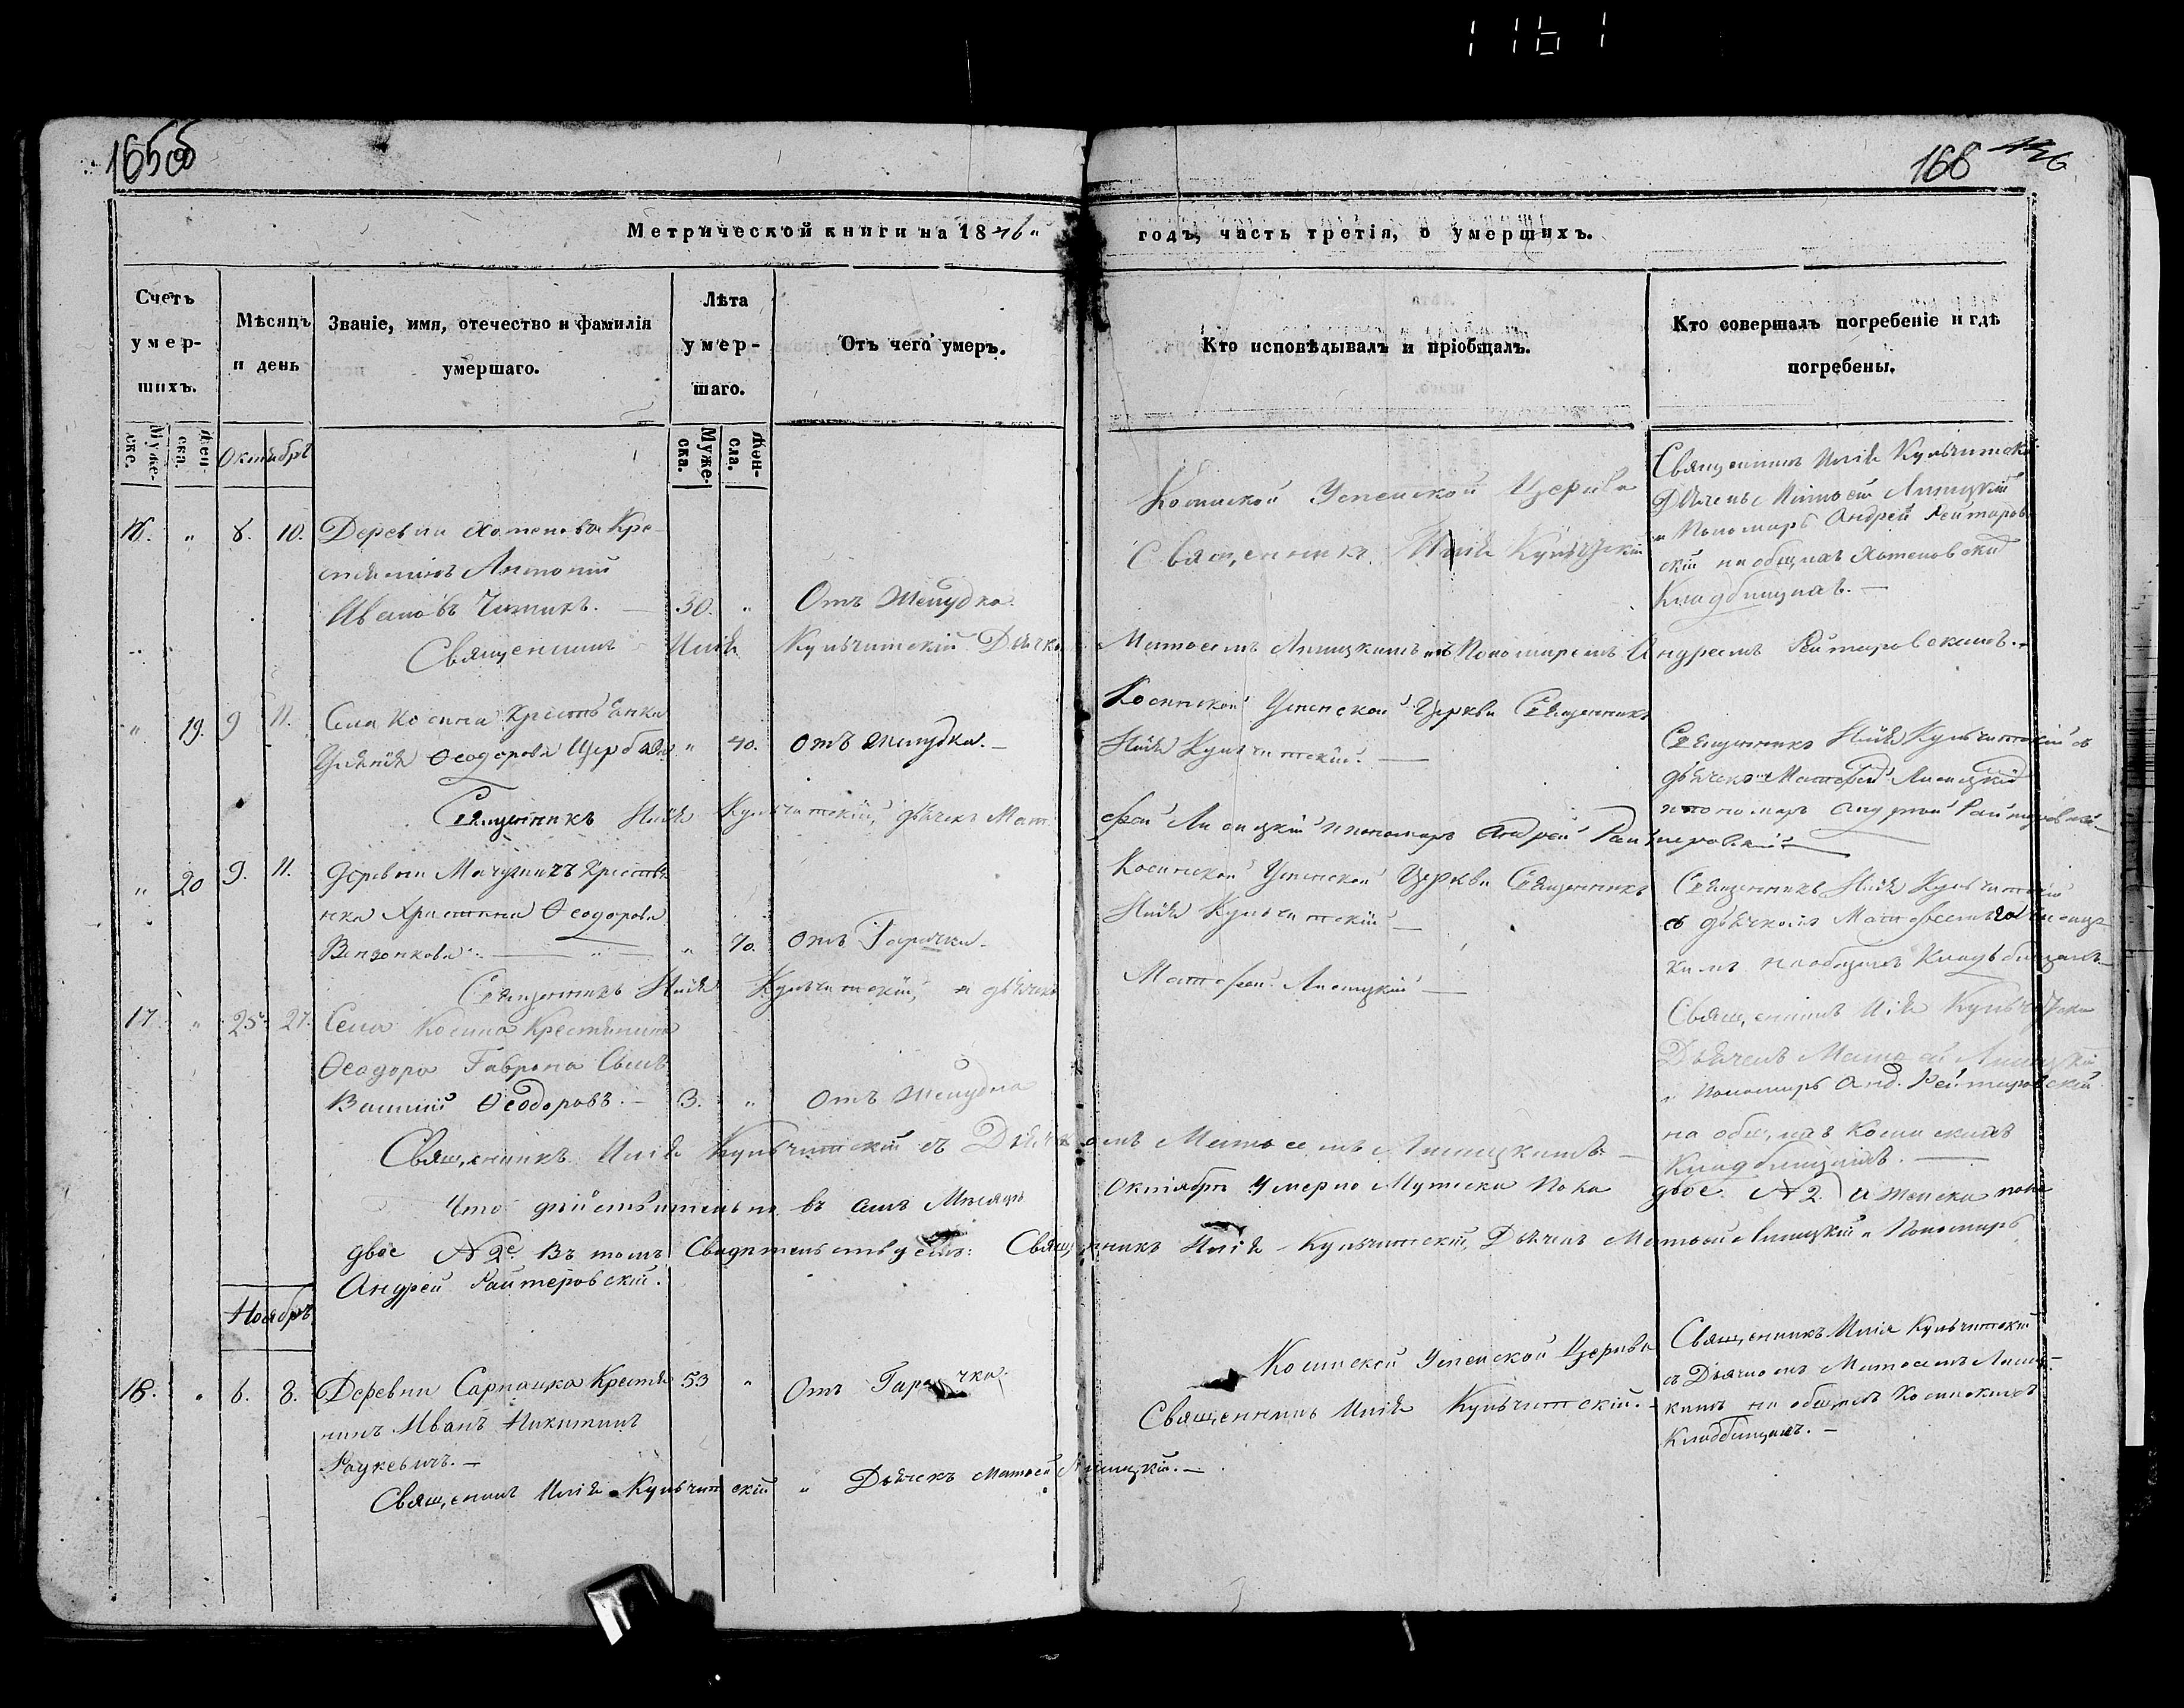 1161
168
Метрической книги на 1846 " годъ, часть третія, о умершихъ.
Счетъ умер-шихъ.
Мѣсяцъ и день
Званіе, имя, отечество и фамилія умершаго.
Лѣта умер-шаго.
Отъ чего умеръ.
Кто исповѣдывалъ и пріобщалъ.
Кто совершалъ погребеніе и гдѣ погребены.
Муже-ске.
Жен-ска.
Октябрь
Муже-ска.
Жен-сла.
" 8. 10. Деревни Хотенова Кре-
стянинъ Антоній
Ивановъ — 30. " Отъ Желудка.
Косинской Успенской Церкви
Священникъ Илія Кульчитскій
Священникъ Илія Кульчитскій
Дьячекъ Матѳей Лисицкій
и Пономаръ Андрей Райтаров-
скій на общихъ Хотеновскихъ
Кладбищахъ. —
Священникъ Илія Кульчитскій Дьячко Матѳеемъ Лисицкимъ и Пономаремъ Андреемъ Райтаровскимъ. —
" 19. 9 11. Села Косина Крестьянка
Ѳеодорова Щербая " 40. отъ желудка. —
Косинской Успенской Церкви Священникъ
Илія Кульчитскій. —
Священникъ Илія Кульчитскій съ
дьячкомъ Матфей Лисицкій
и пономаръ Андрей Райтеровскій —
Священникъ Илія Кульчитскій, дьячекъ Мат
фей Лисицкій и пономаръ Андрей Райтеровскій —
" 20 9. 11. деревни Мачулицъ Крестья
нка Христина Ѳеодорова
— " — " 70. отъ Гарячки. —
Косинской Успенской Церкви Священникъ
Илія Кульчитскій —
Священникъ Илія Кульчитскій
съ дьячкомъ Матфеемъ Лисиц-
кимъ на общихъ Кладбищахъ —
Священникъ Илія Кульчитскій, и дьячекъ Матфей Лисицкій —
17. " 25. 27. Села Косина Крестьянина
Ѳеодора Гаврона Сынъ
Василій Ѳеодоровъ. — 3. " Отъ Желудка
Священникъ Илія Кульчитскій
Дьячекъ Матѳей Лисицкій
и Пономаръ Анд. Райтаровскій
на общихъ Косинскихъ
Кладбищахъ. —
Священникъ Илія Кульчитскій съ Дьячкомъ Матѳеемъ Лисицкимъ —
Что дѣйствительно въ семъ Мѣсяцѣ Октябрѣ Умерло Мужска Пола двое № 2. а женска пола
двое № 2е Въ томъ Свидѣтельствуемъ: Священникъ Илія Кульчитскій, Дьячекъ Матѳей Лисицкій и Пономаръ
Андрей Райтеровскій.
Ноябрь
18. " 6. 8. Деревни Сарнацка Крестья 53 " Отъ Гарячка.
нинъ Иванъ Никитинъ
Раукевичъ. —
Косинской Успенской Церкви
Священникъ Илія Кульчитскій. —
Священникъ Илія Кульчитскій
съ Дьячкомъ Матѳеемъ Лисиц-
кимъ на общихъ Косинскихъ
Кладбищахъ. —
Священникъ Илія Кульчитскій " Дьячекъ Матѳей Лисицкій. —